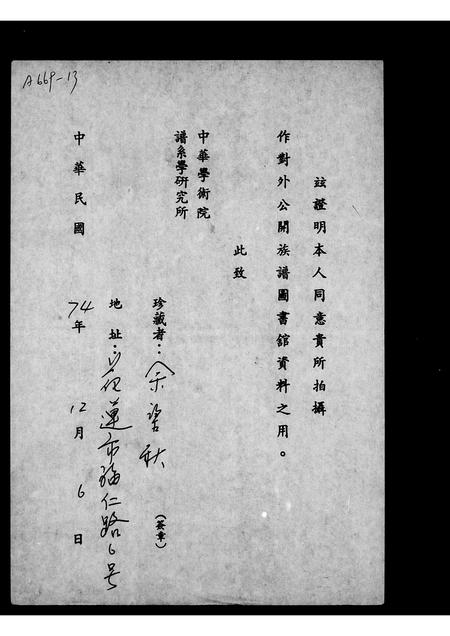 A669-13
玆證明本人同意貴所拍攝
作對外公開族譜圖書館資料之用。
此致
中華學術院
譜系學研究所
珍藏者：余碧秋 (簽章)
地址：花蓮市福仁路6號
中華民國 74年 12月 6日